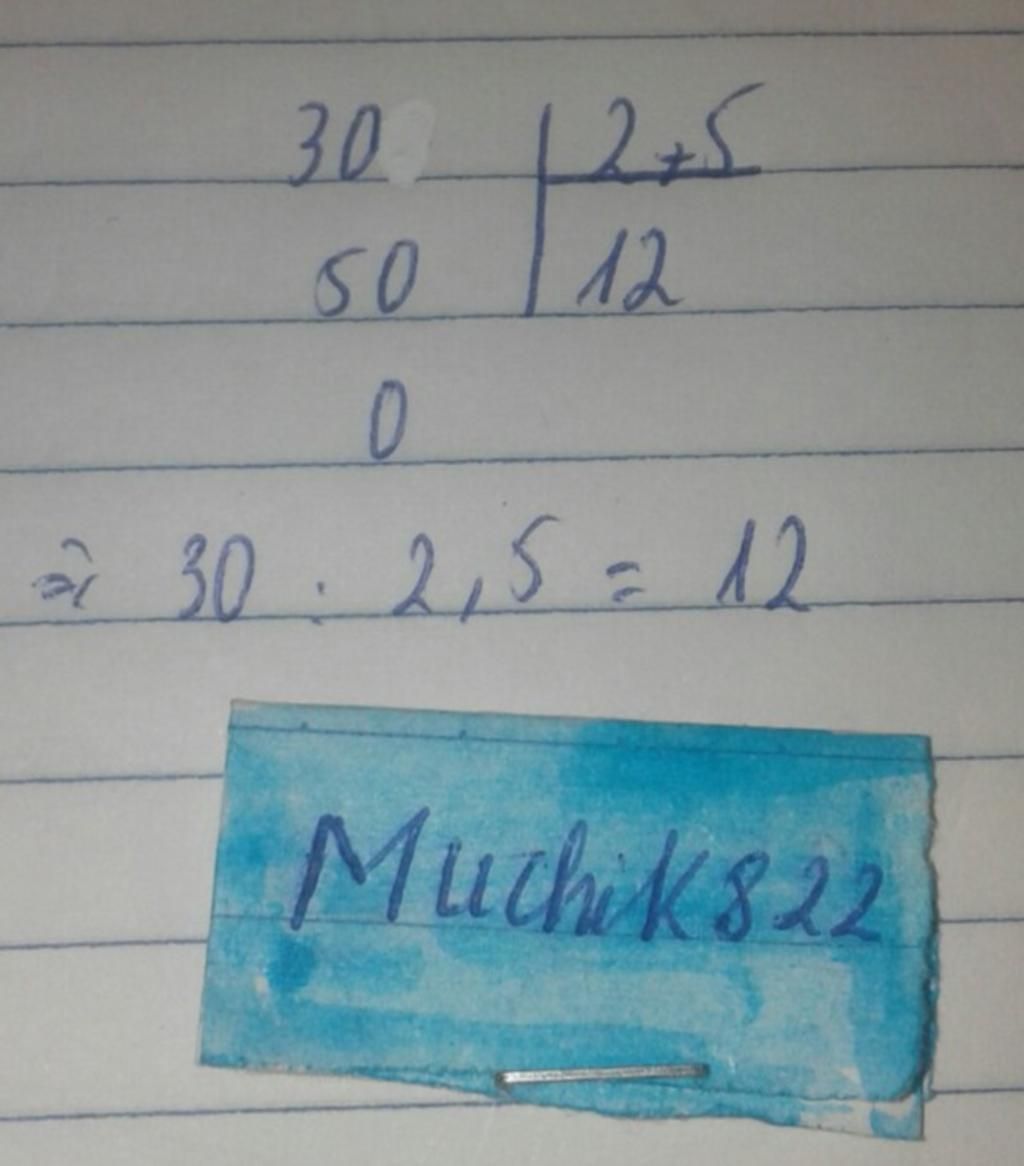 30 2,5
50 12
0
=> 30 : 2,5 = 12
Muchik822